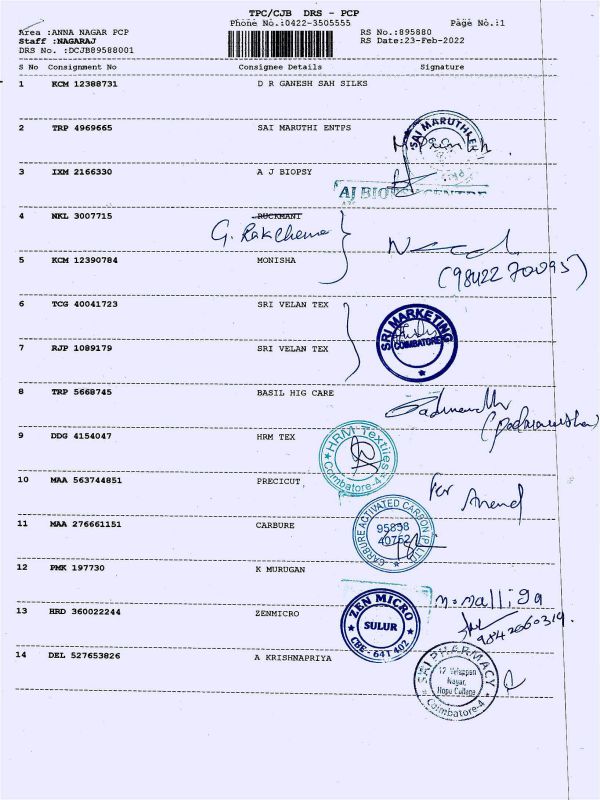 TPC/CJB DRS - PCP
Area :ANNA NAGAR PCP Phone No.:0422-3505555 Page No.:1
Staff :NAGARAJ RS No.:895880
DRS No. :DCJB89588001 RS Date:23-Feb-2022
S No Consignment No Consignee Details Signature
1 KCM 12388731 D R GANESH SAH SILKS
2 TRP 4969665 SAI MARUTHI ENTPS
SAI MARUTHI
3 IXM 2166330 A J BIOPSY
AJ BIOPSY CENTRE
4 NKL 3007715 RUCKMANI
G. Rakchema
5 KCM 12390784 MONISHA
(98422 70095)
6 TCG 40041723 SRI VELAN TEX
SRI MARKETING
COIMBATORE
7 RJP 1089179 SRI VELAN TEX
8 TRP 5668745 BASIL HIG CARE
9 DDG 4154047 HRM TEX
HRM-Textiles
Coimbatore-4
10 MAA 563744851 PRECICUT
For Anend
11 MAA 276661151 CARBURE
CARBURE ACTIVATED CARBON (P) LTD.
95858
40752
12 PMK 197730 K MURUGAN
m.malliga
13 HRD 360022244 ZENMICRO
ZEN MICRO
SULUR
CBE - 641 402
9842060319.
14 DEL 527653826 A KRISHNAPRIYA
SRI PHARMACY
Nagar,
Coimbatore-4